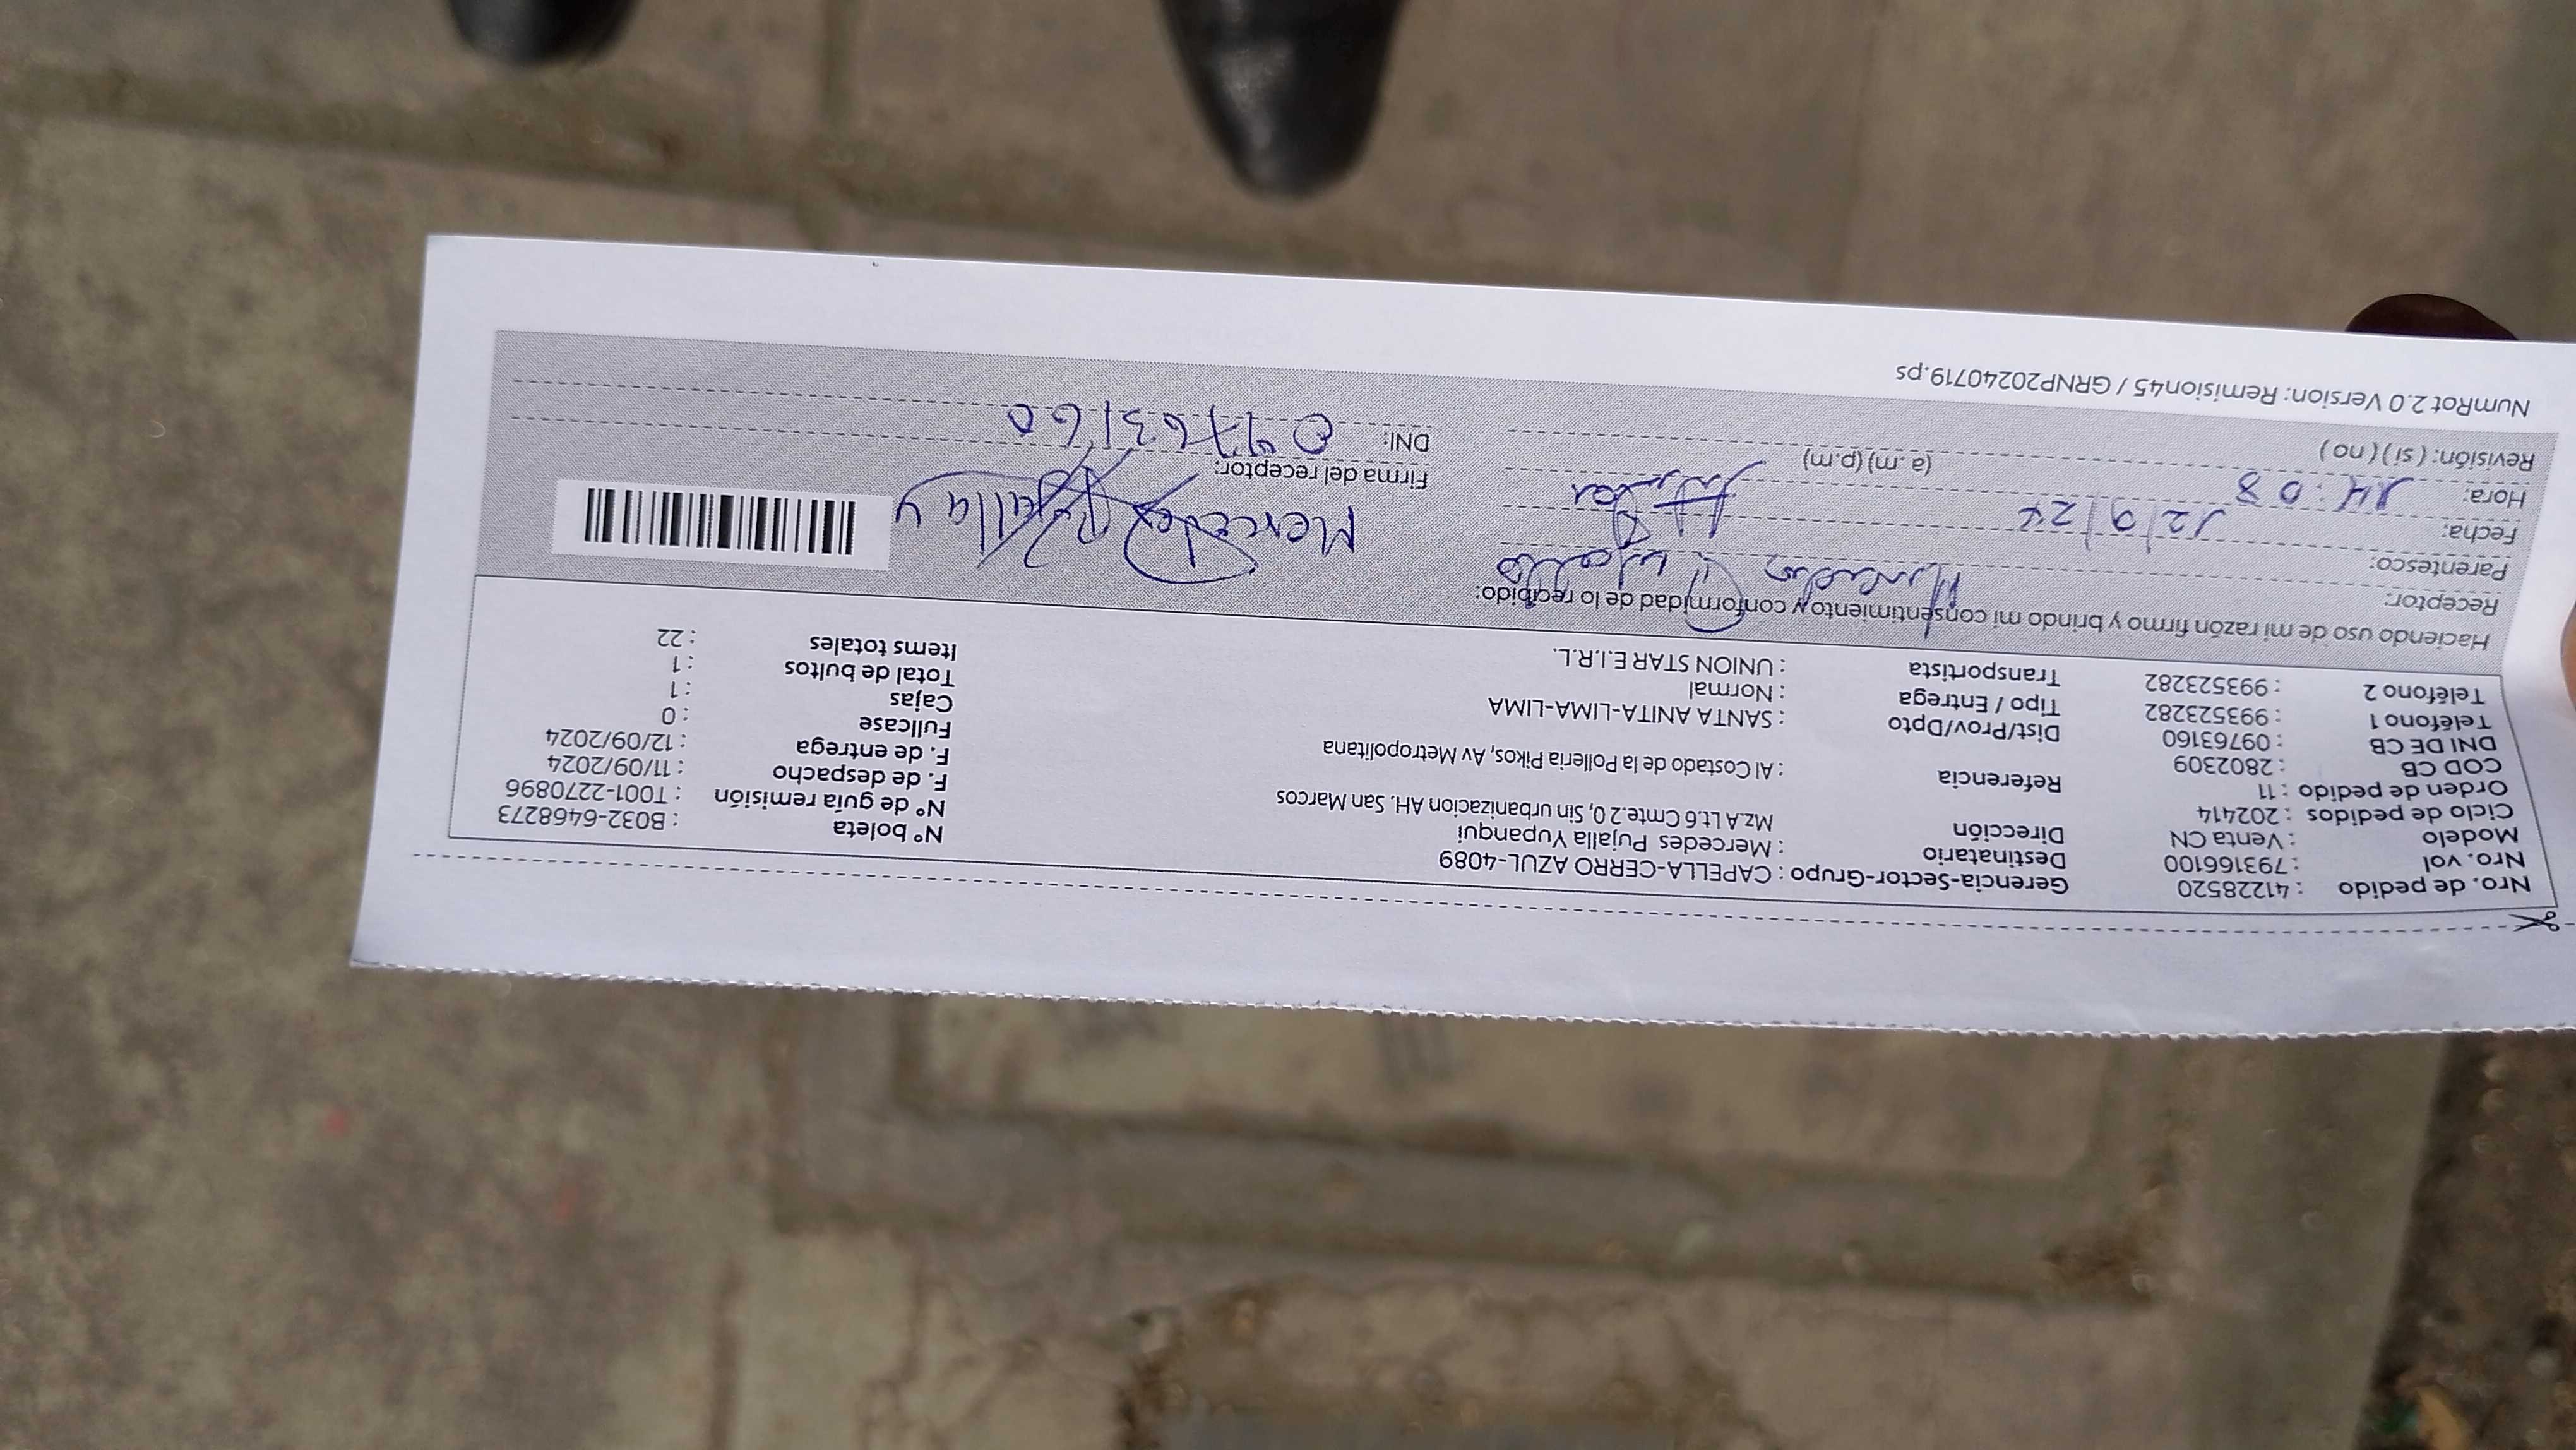 Nro. de pedido : 41228520 Gerencia-Sector-Grupo : CAPELLA-CERRO AZUL-4089 N° boleta : B032-6468273
Nro. vol : 793166100 Destinatario : Mercedes Pujalla Yupanqui N° de guía remisión : T001-2270896
Modelo : Venta CN Dirección Mz.A Lt.6 Cmte.2 0, Sin urbanizacion AH. San Marcos F. de despacho : 11/09/2024
Ciclo de pedidos : 202414 F. de entrega : 12/09/2024
Orden de pedido : 11 Referencia : Al Costado de la Polleria Pikos, Av Metropolitana Fullcase : 0
COD CB : 2802309 Cajas : 1
DNI DE CB : 09763160 Dist/Prov/Dpto : SANTA ANITA-LIMA-LIMA Total de bultos : 1
Teléfono 1 : 993523282 Tipo / Entrega : Normal Items totales : 22
Teléfono 2 : 993523282 Transportista : UNION STAR E.I.R.L.
Haciendo uso de mi razón firmo y brindo mi consentimiento y conformidad de lo recibido:
Receptor: Mercedes
Parentesco: Titular
Fecha: 12/9/24 Mercedes Pujalla Y
Hora: 14:08 (a.m) (p.m) Firma del receptor:
Revisión: ( si ) ( no ) DNI: 09763160
NumRot 2.0 Version: Remision45 / GRNP20240719.ps